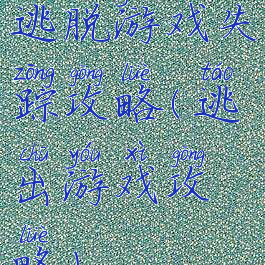 逃脱游戏失
zōng gōng lüè táo
踪攻略(逃
chū yóu xì gōng
出游戏攻
lüè
略)